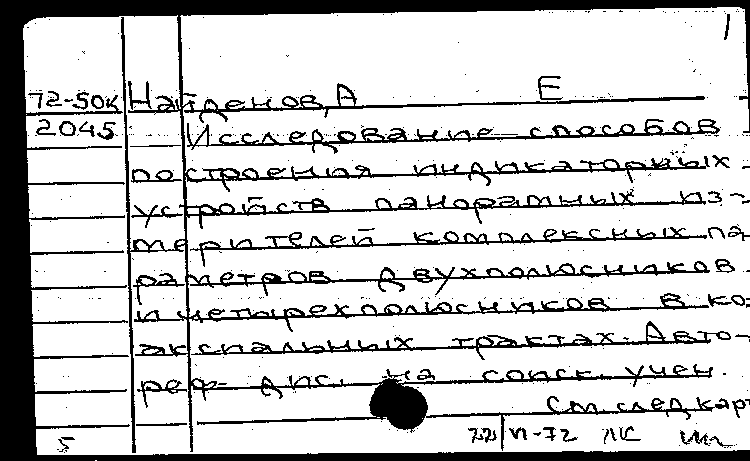 72-50к Найденов, А Е
2045 Исследование способов
построения индикаторных
устройств панорамных из-
мерителей комплексных па
раметров двухполюсников
и четырехполюсников в ко-
аксиальных трактах. Авто-
реф. дис. на соиск. учен.
См след карт
5 22/VI-72